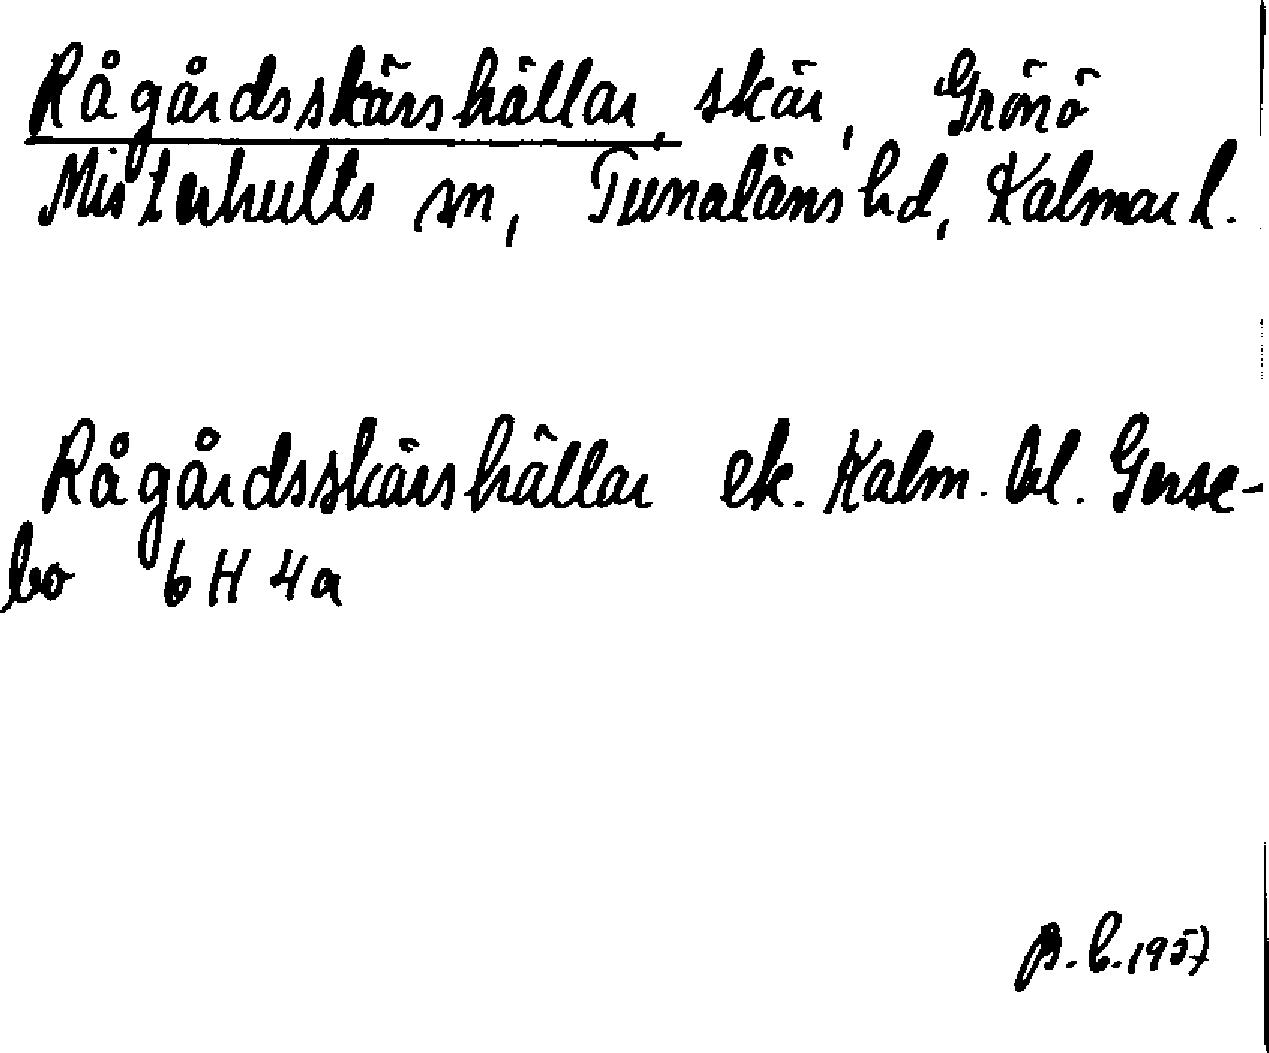 Rågårdsskärshällar, skär, Grönö
Misterhults sn, Tunaläns hd, Kalmar l.
Rågårdsskärshällar ek. Kalm. bl. Gerse-
bo 6 H 4a
B. C. 1957